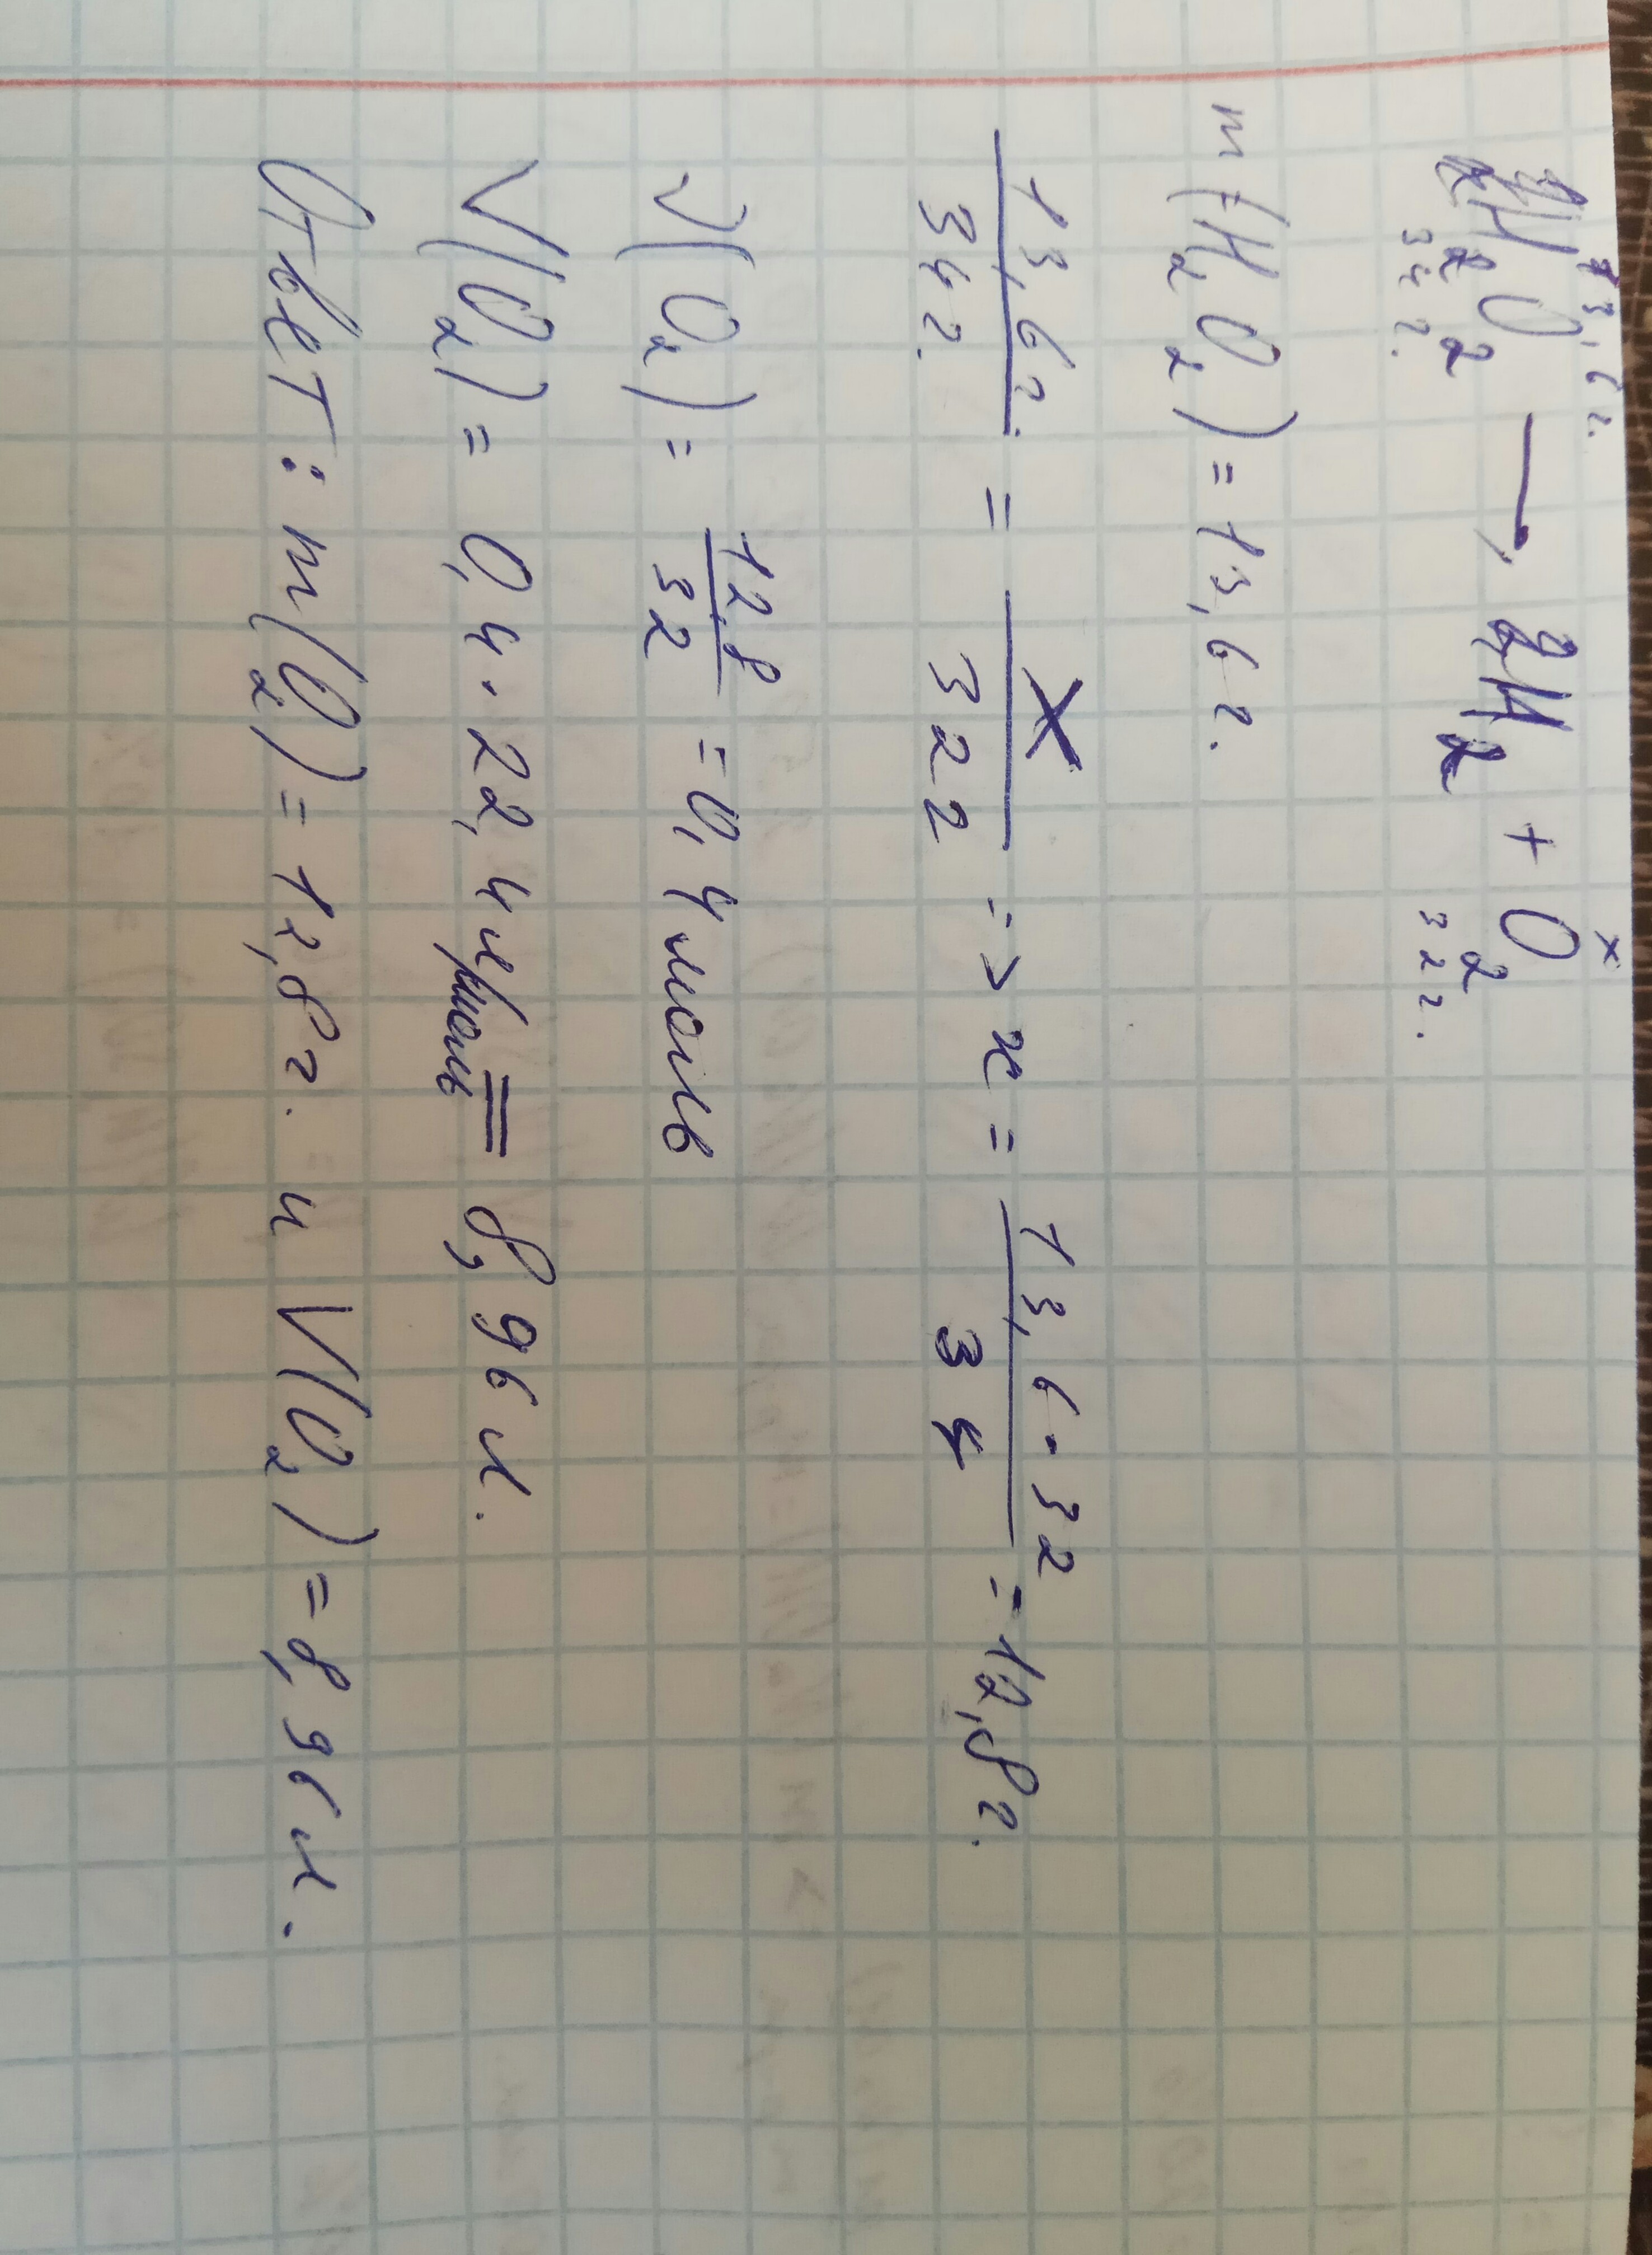 13,6 г. x
H₂O₂ → H₂ + O₂
34 г. 32 г.
m(H₂O₂) = 13,6 г.
13,6 г. / 34 г. = X / 32 г => x = 13,6 · 32 / 34 = 12,8 г.
√(O₂) = 12,8 / 32 = 0,4 моль
V(O₂) = 0,4 · 22,4 л/моль = 8,96 л.
Ответ: m(O₂) = 12,8 г. и V(O₂) = 8,96 л.